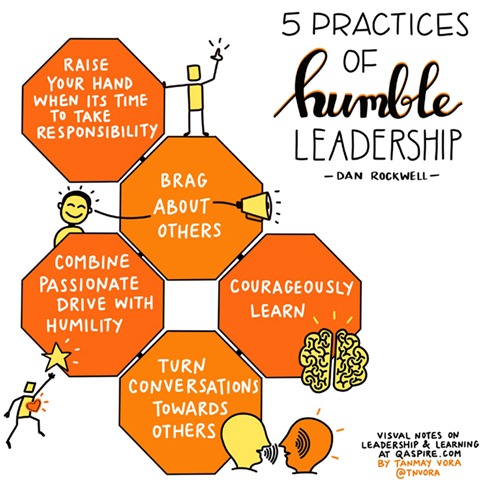 5 PRACTICES
OF
humble
LEADERSHIP
– DAN ROCKWELL –
RAISE
YOUR HAND
WHEN ITS TIME
TO TAKE
RESPONSIBILITY
BRAG
ABOUT
OTHERS
COMBINE
PASSIONATE
DRIVE WITH
HUMILITY
COURAGEOUSLY
LEARN
TURN
CONVERSATIONS
TOWARDS
OTHERS
VISUAL NOTES ON
LEADERSHIP & LEARNING
AT QASPIRE.COM
BY TANMAY VORA
@TNVORA